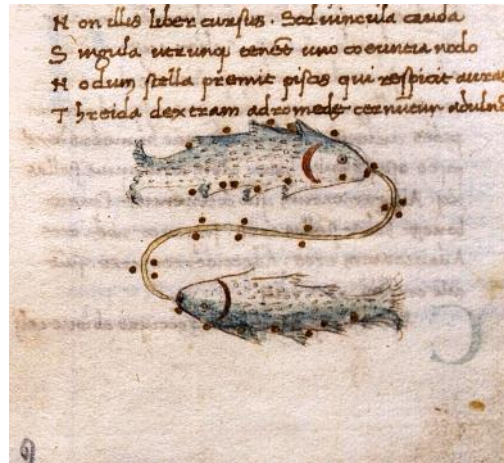 N on illis liber cursus. Sed vincula cauda
S ingula utrunq tenẽt uno coeuntia nodo
N odum stella premit piscis qui respicit auras
T hreida dextram adromede cernũtur adulnã